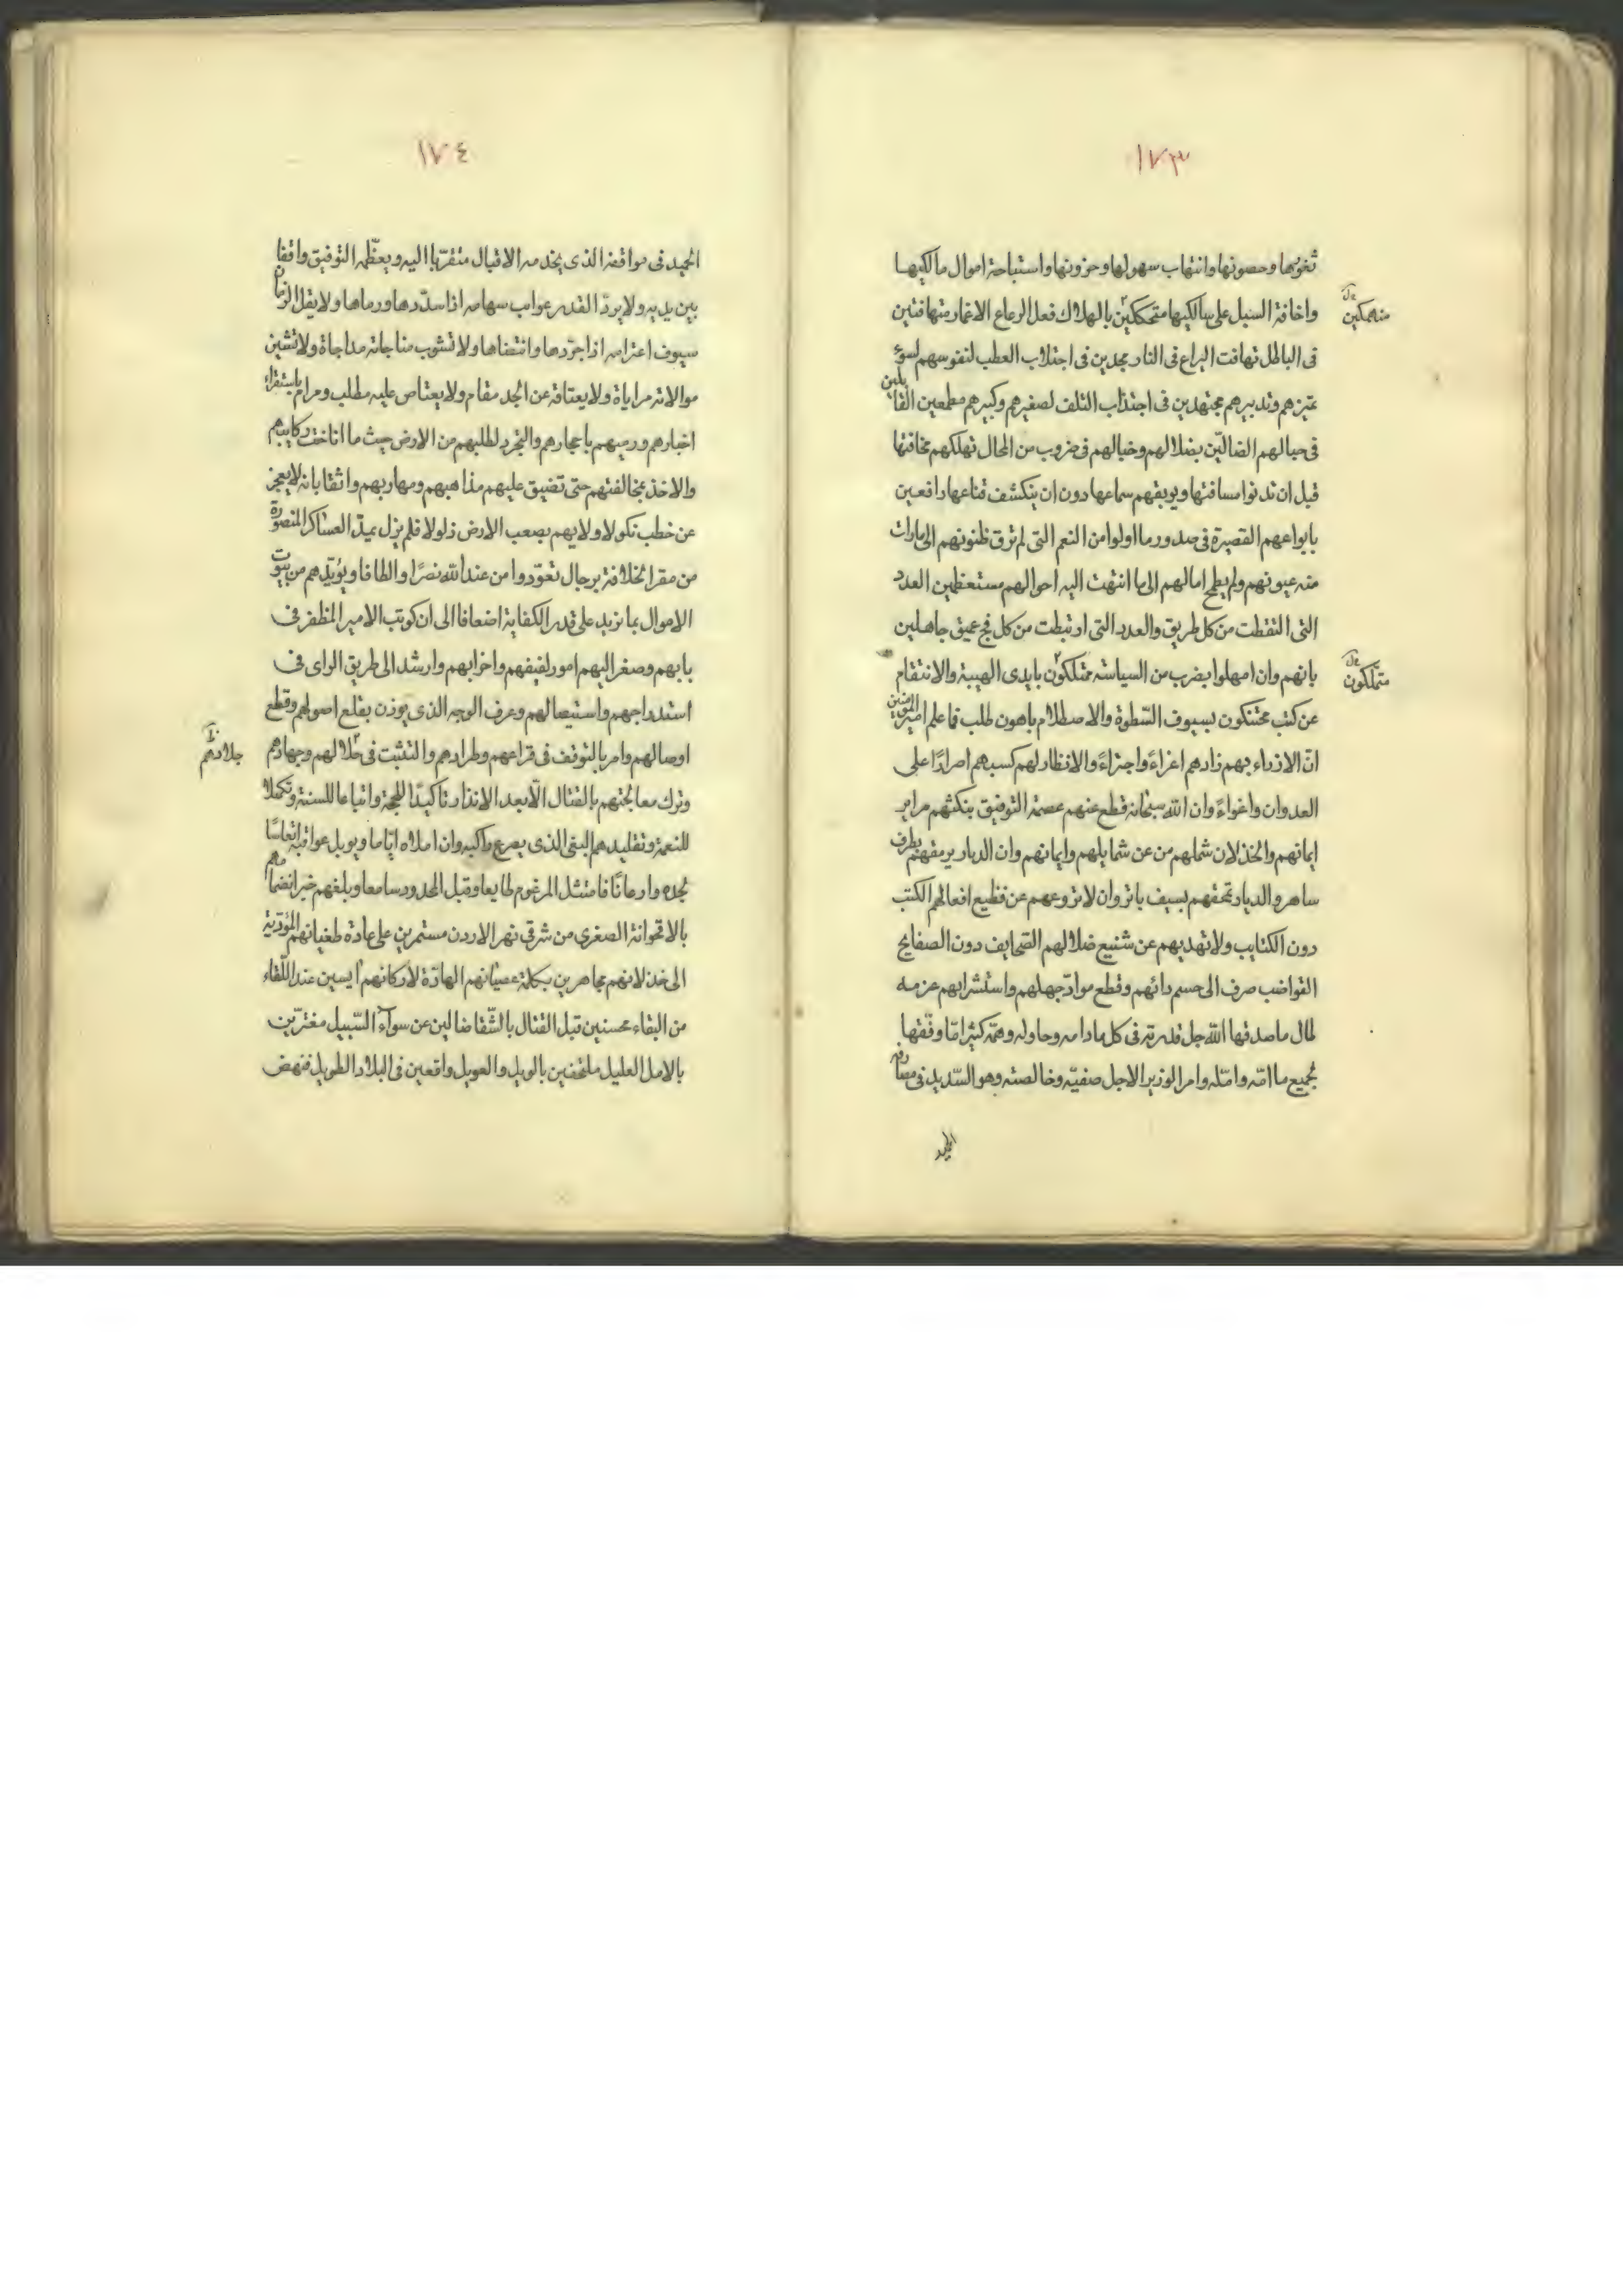 ١٧٣
ثغورها وحصونها وانتهاب سهولها وحزونها واستباحة اموال مالكيها
واخافة السبيل على سالكيها متحككين بالهلاك فعل الرعاع الاغمار متهافتين
منهمكين
فى الباطل تهافت اليراع فى النار مجدين فى اجتلاب العطب لنفوسهم لسوء
تميزهم وتدبيرهم مجتهدين فى اجتذاب التلف لصغيرهم وكبيرهم مطمعين القابلين
فى حبالهم الضالّين بضلالهم وخبالهم فى ضروب من المحال تهلكهم مخافتها
قبل ان تدنوا مسافتها ويوبقهم سماعها دون ان ينكشف قناعها رافعين
بابواعهم القصيرة فى صدور ما اولوا من النعم التى لم ترق ظنونهم الى مارات
منه عيونهم ولم يطمح امالهم الى ما انتهت اليه احوالهم مستعظمين العدد
التى التقطت من كل طريق والعدد التى ارتبطت من كل فج عميق جاهلين
بانهم وان امهلوا بضرب من السياسة ممتلكون بايدى الهيبة والانتقام
متملكون
عن كثب محتنكون بسيوف السّطوة والاصطلام باهون طلب فما علم امير المومنين
انّ الازراء بهم زادهم اغراءً واجتراءً والانظار لهم كسبهم اصرارًا على
العدوان واغواءً وان الله سبحانه قطع عنهم عصمة التوفيق بنكثهم مراير
ايمانهم والخذلان شملهم من عن شمايلهم وايمانهم وان الدبار يرمقهم بطرف
ساهر والديار تمحقهم بسيف باتر وان لا تروعهم عن فظيع افعالهم الكتب
دون الكتايب ولا تهديهم عن شنيع ضلالهم الصّحايف دون الصفايح
القواضب صرف الى حسم دائهم وقطع موادّ جهلهم واستشرابهم عزمه
لمال ما صدقها الله جل قدرته فى كل ما دامه وحاوله وهمّة كثيرا مّا وفّقها
بجميع ما امّه وامّله وامر الوزير الاجل صفيّه وخالصته وهو السّديد فى مصادفه
الحميد
١٧٤
الحميد فى مواقفه الذى يخدمه الاقبال متقرّبا اليه ويعظّمه التوفيق واقفا
بين يديه ولا يردّ القدر عوايب سهامه اذا سدّدها ورماها ولا يقل الزمان
سيوف اعتزامه اذا جرّدها وانتضاها ولا تشوب مناجاته مداجاة ولا تشين
موالاته مراياة ولا يعتاقه عن الجد مقام ولا يعتاص عليه مطلب ومرام باستقراء
اخبارهم ورميهم باعجارهم والتجرد لطلبهم من الارض حيث ما اناخت ركابيهم
والاخذ بمخالفتهم حتى تضيق عليهم مذاهبهم ومهاربهم واثقا بانه لا يعجز
عن خطب نكولا ولا يهم بصعب الارض ذلولا فلم يزل يمدّ العساكر المنصورة
من مقر الخلافة برجال تعوّدوا من عند الله نصرًا والطافا ويؤيّدهم من بيوت
الاموال بما يزيد على قدر الكفاية اضعافا الى ان كوتب الامير المظفر فى
بابهم وصغر اليهم امور لفيفهم واخرابهم وارشد الى طريق الراى فى
استدراجهم واستيصالهم وعرف الوجه الذى يوذن بقلع اصولهم وقطع
اوصالهم وامر بالتوقف فى قراعهم وطرادهم والتثبت فى جلالهم وجهادهم
جلادهم
وترك معالجتهم بالقتال الّا بعد الانذار تاكيدًا للحجة واتباعا للسنة وتكملا
للنعمة وتقليدهم البغى الذى يصرع راكبه وان املاه ايّاما ويوبل عواقبه اتعاسًا
لجده وارغامًا فامتثل المرغوم طايعا وقبل المحدود سامعا وبلغهم خبر انضمامهم
بالاقحوانة الصغرى من شرقى نهر الاردن مستمرين على عادة طغيانهم المؤدّية
الى خذلانهم مجاهرين بكلمة عصيانهم الهادّة لاركانهم ايسين عند اللّقاء
من البقاء محسنين قبل القتال بالشّقا ضالين عن سوآء السّبيل مغترّين
بالامل العليل ملتحفين بالويل والعويل واقعين فى البلاد الطويل فنهض